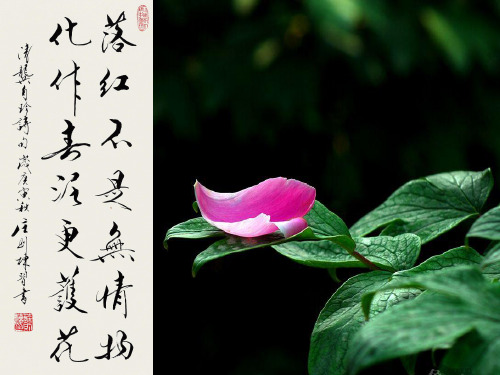 落红不是無情物
化作春泥更護花
清龔自珍詩句 歲庚寅秋
練習書